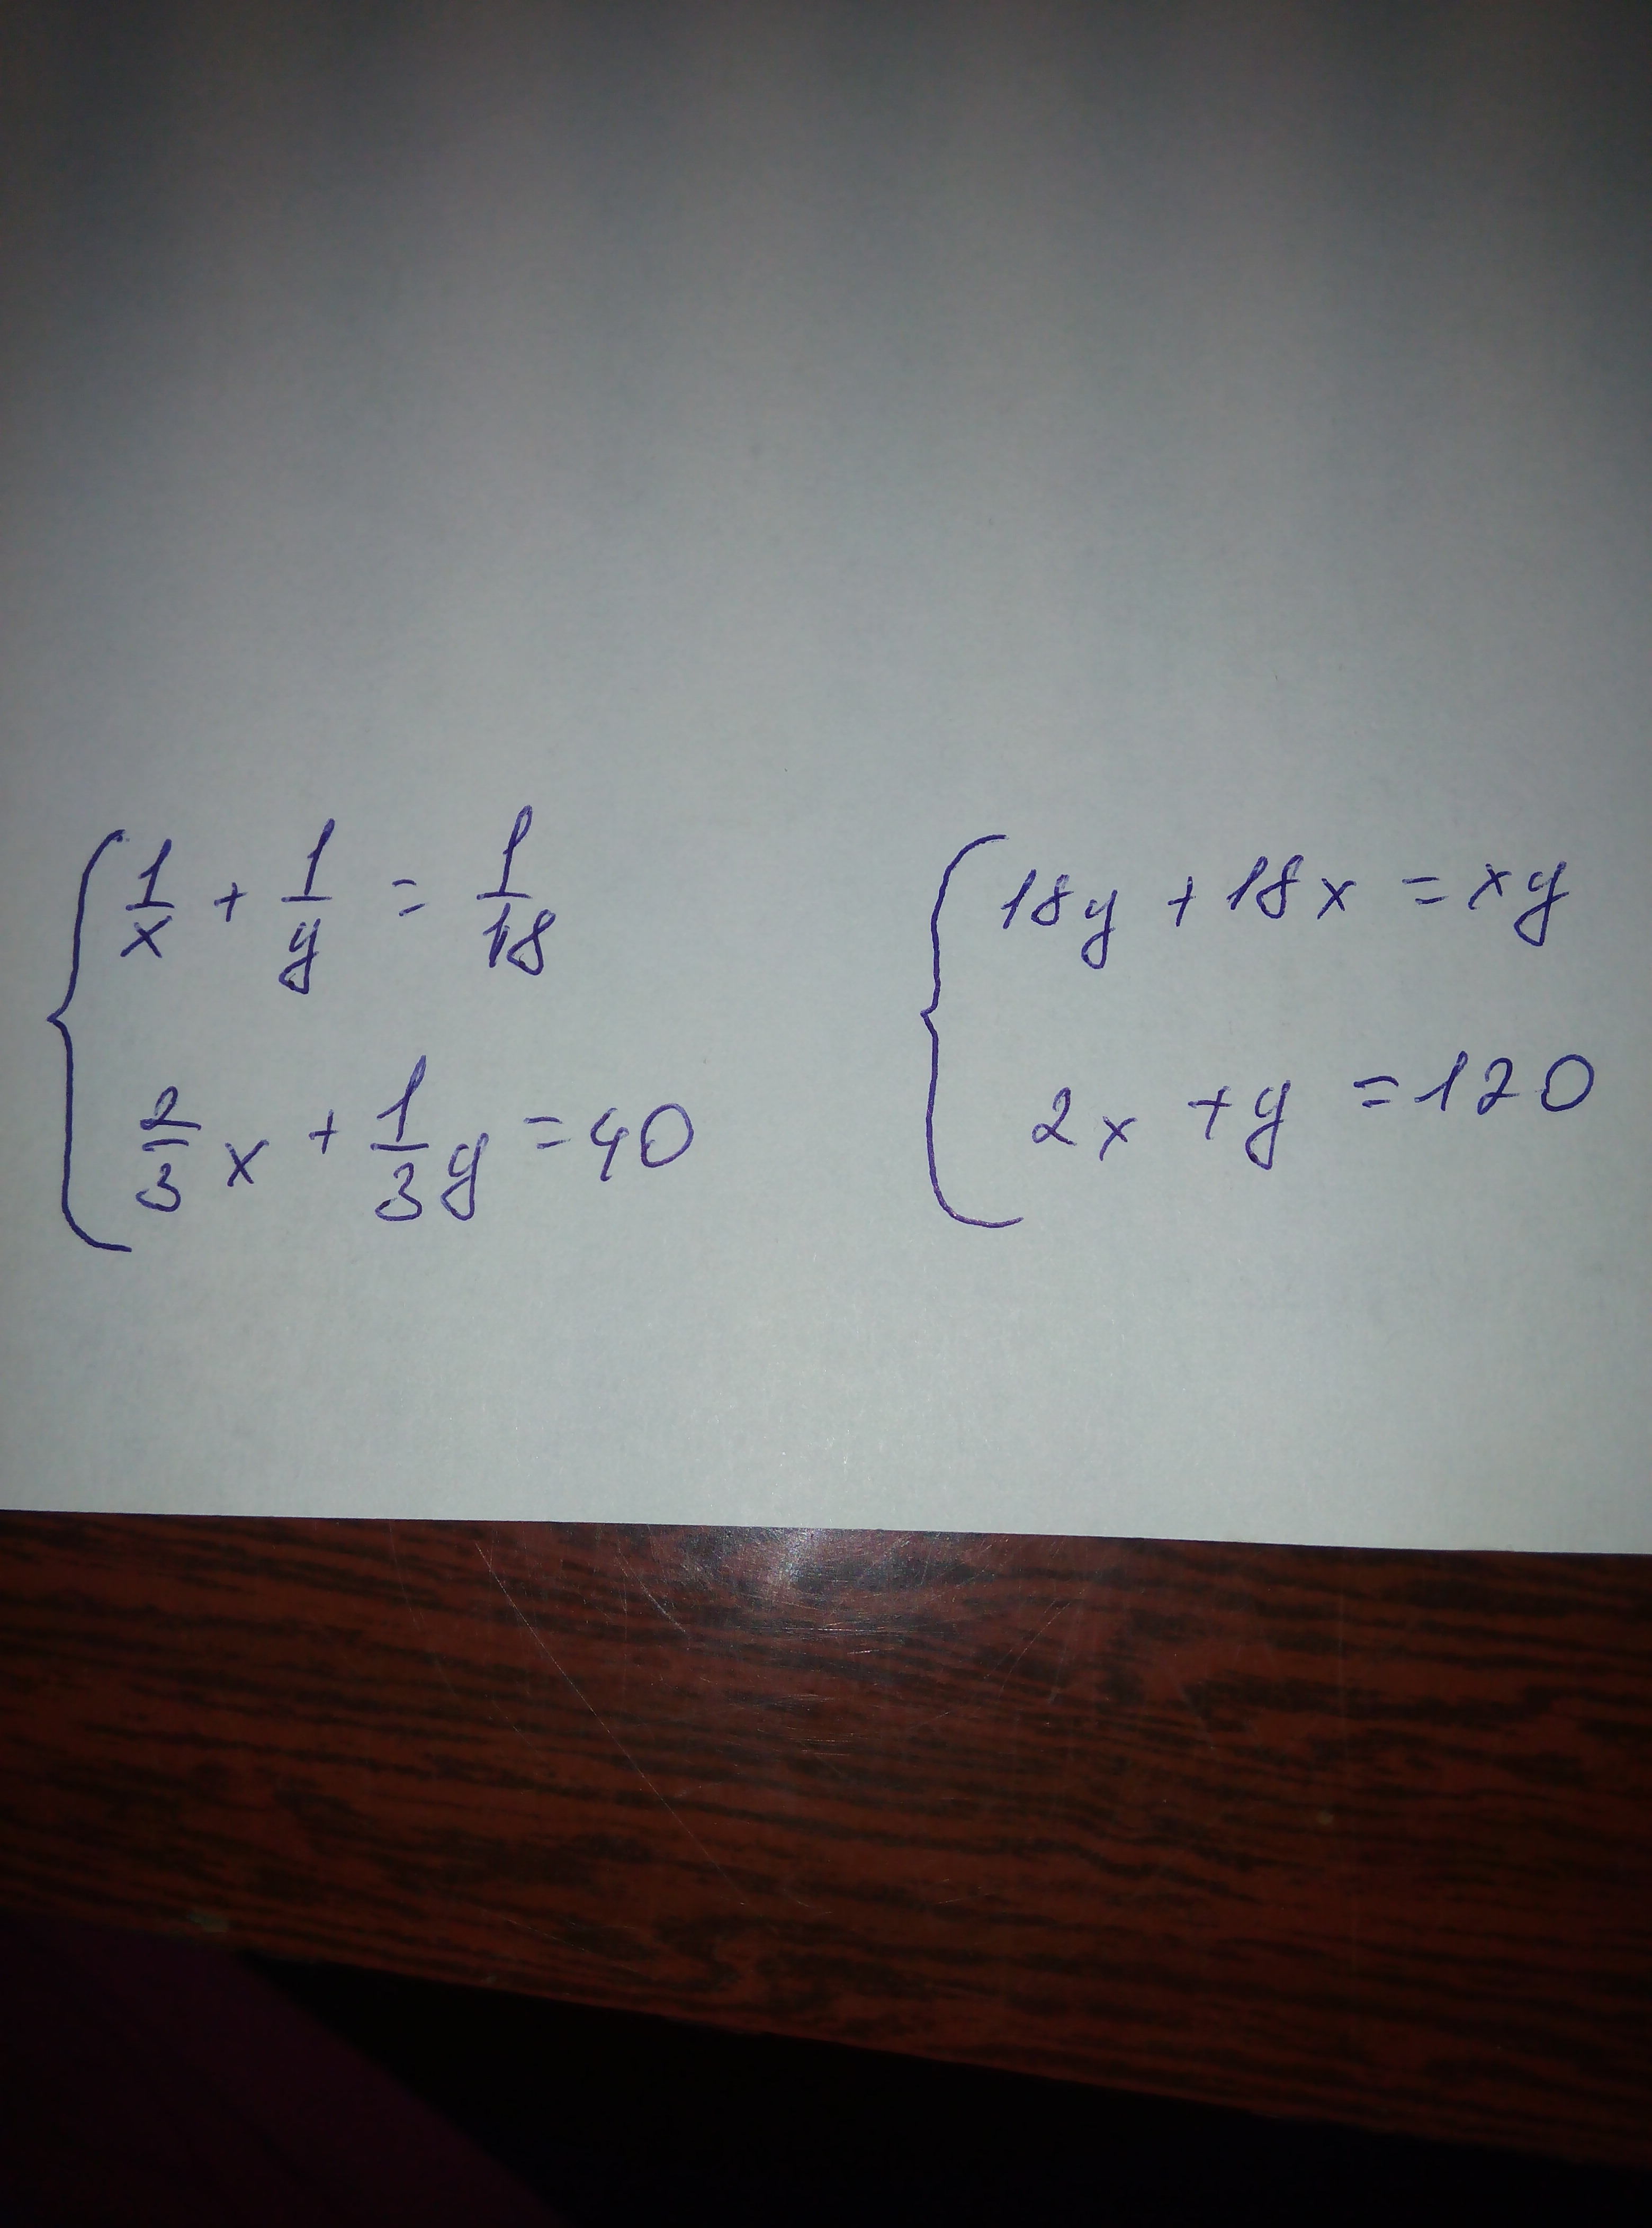 { 1/x + 1/y = 1/18
2/3 x + 1/3 y = 40
{ 18y + 18x = xy
2x + y = 120